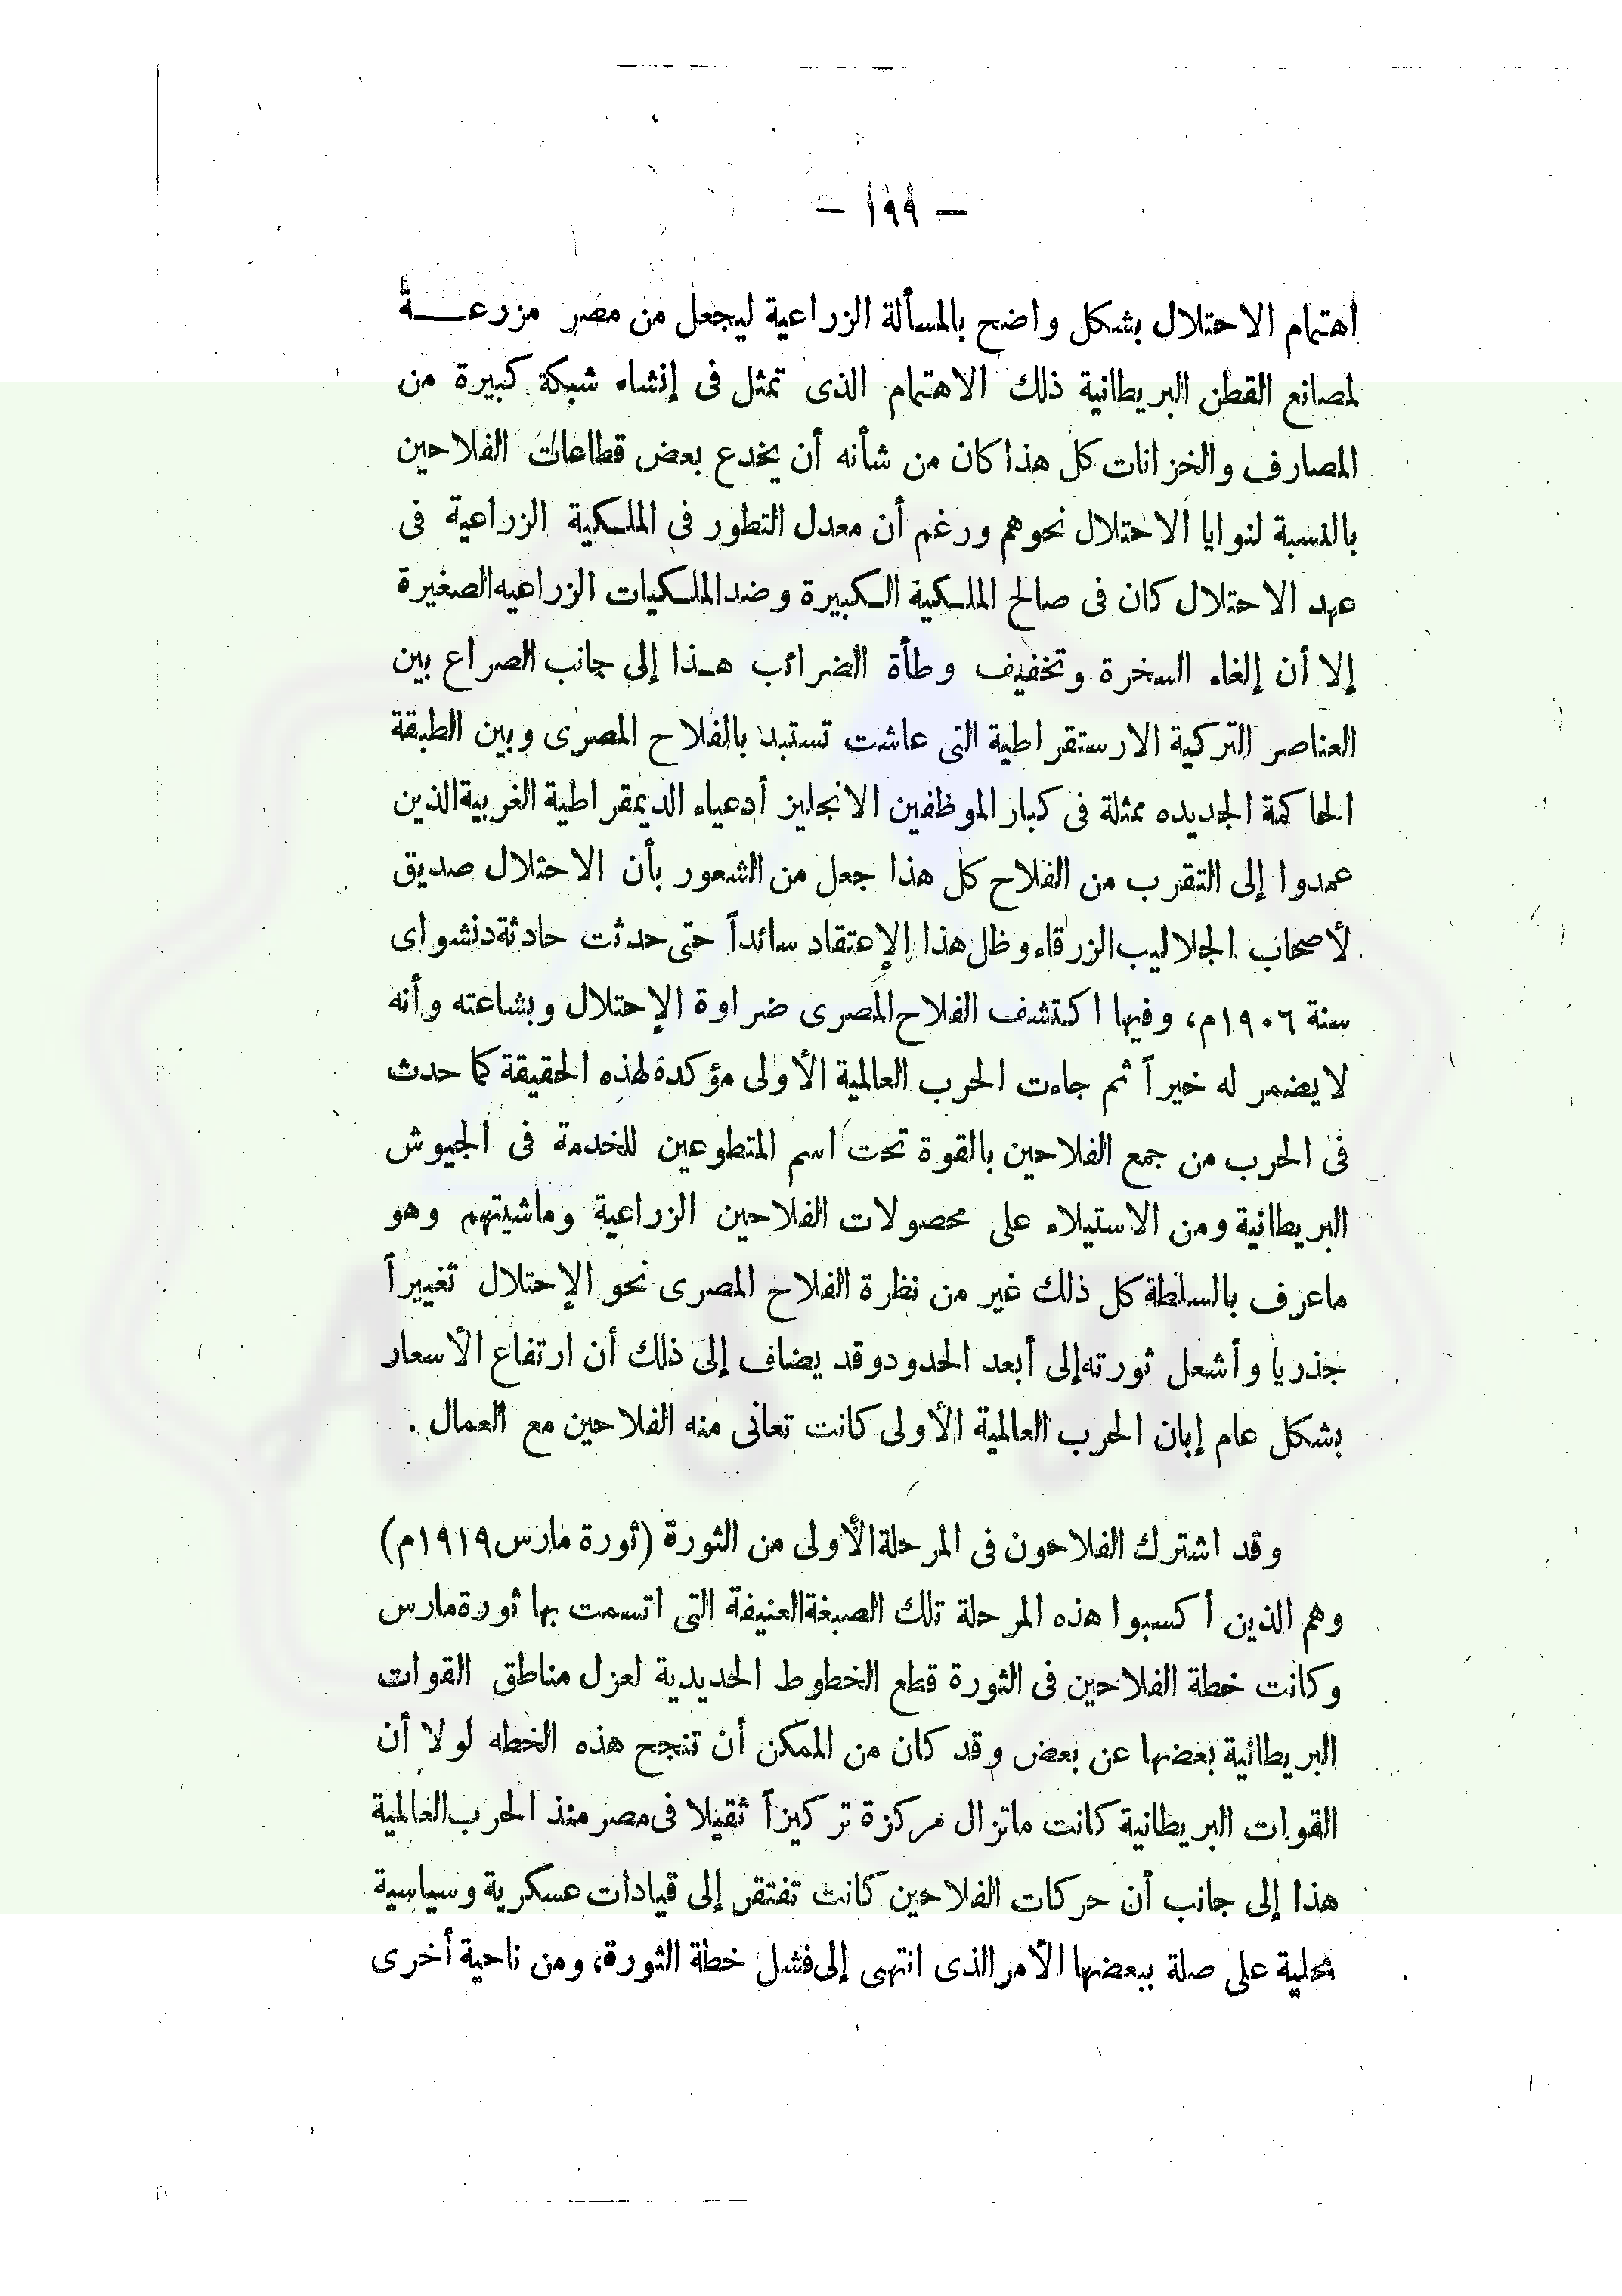 — ١٩٩ —
اهتمام الاحتلال بشكل واضح بالمسألة الزراعية ليجعل من مصر مزرعـــة
لمصانع القطن البريطانية ذلك الاهتمام الذى تمثل فى إنشاء شبكة كبيرة من
المصارف والخزانات كل هذا كان من شأنه أن يخدع بعض قطاعات الفلاحين
بالنسبة لنوايا الاحتلال نحوهم ورغم أن معدل التطور فى الملكية الزراعية فى
عهد الاحتلال كان فى صالح الملكية الكبيرة وضد الملكيات الزراعيه الصغيرة
إلا أن إلغاء السخرة وتخفيف وطأة الضرائب هذا إلى جانب الصراع بين
العناصر التركية الارستقراطية التى عاشت تستبد بالفلاح المصرى وبين الطبقة
الحاكمة الجديده ممثلة فى كبار الموظفين الانجليز أدعياء الديمقراطية الغربية الذين
عمدوا إلى التقرب من الفلاح كل هذا جعل من الشعور بأن الاحتلال صديق
لأصحاب الجلاليب الزرقاء وظل هذا الإعتقاد سائداً حتى حدثت حادثة دنشواى
سنة ١٩٠٦م، وفيها اكتشف الفلاح المصرى ضراوة الإحتلال وبشاعته وأنه
لا يضمر له خيراً ثم جاءت الحرب العالمية الأولى مؤكدة لهذه الحقيقة كما حدث
فى الحرب من جمع الفلاحين بالقوة تحت اسم المتطوعين للخدمة فى الجيوش
البريطانية ومن الاستيلاء على محصولات الفلاحين الزراعية وماشيتهم وهو
ماعرف بالسلطة كل ذلك غير من نظرة الفلاح المصرى نحو الإحتلال تغييراً
جذريا وأشعل ثورته إلى أبعد الحدود وقد يضاف إلى ذلك أن ارتفاع الأسعار
بشكل عام إبان الحرب العالمية الأولى كانت تعانى منه الفلاحين مع العمال .
وقد اشترك الفلاحون فى المرحلة الأولى من الثورة (ثورة مارس ١٩١٩م)
وهم الذين أكسبوا هذه المرحلة تلك الصبغة العنيفة التى اتسمت بها ثورة مارس
وكانت خطة الفلاحين فى الثورة قطع الخطوط الحديدية لعزل مناطق القوات
البريطانية بعضها عن بعض وقد كان من الممكن أن تنجح هذه الخطه لولا أن
القوات البريطانية كانت ماتزال مركزة تركيزاً ثقيلا فى مصر منذ الحرب العالمية
هذا إلى جانب أن حركات الفلاحين كانت تفتقر إلى قيادات عسكرية وسياسية
محلية على صلة ببعضها الأمر الذى انتهى إلى فشل خطة الثورة، ومن ناحية أخرى